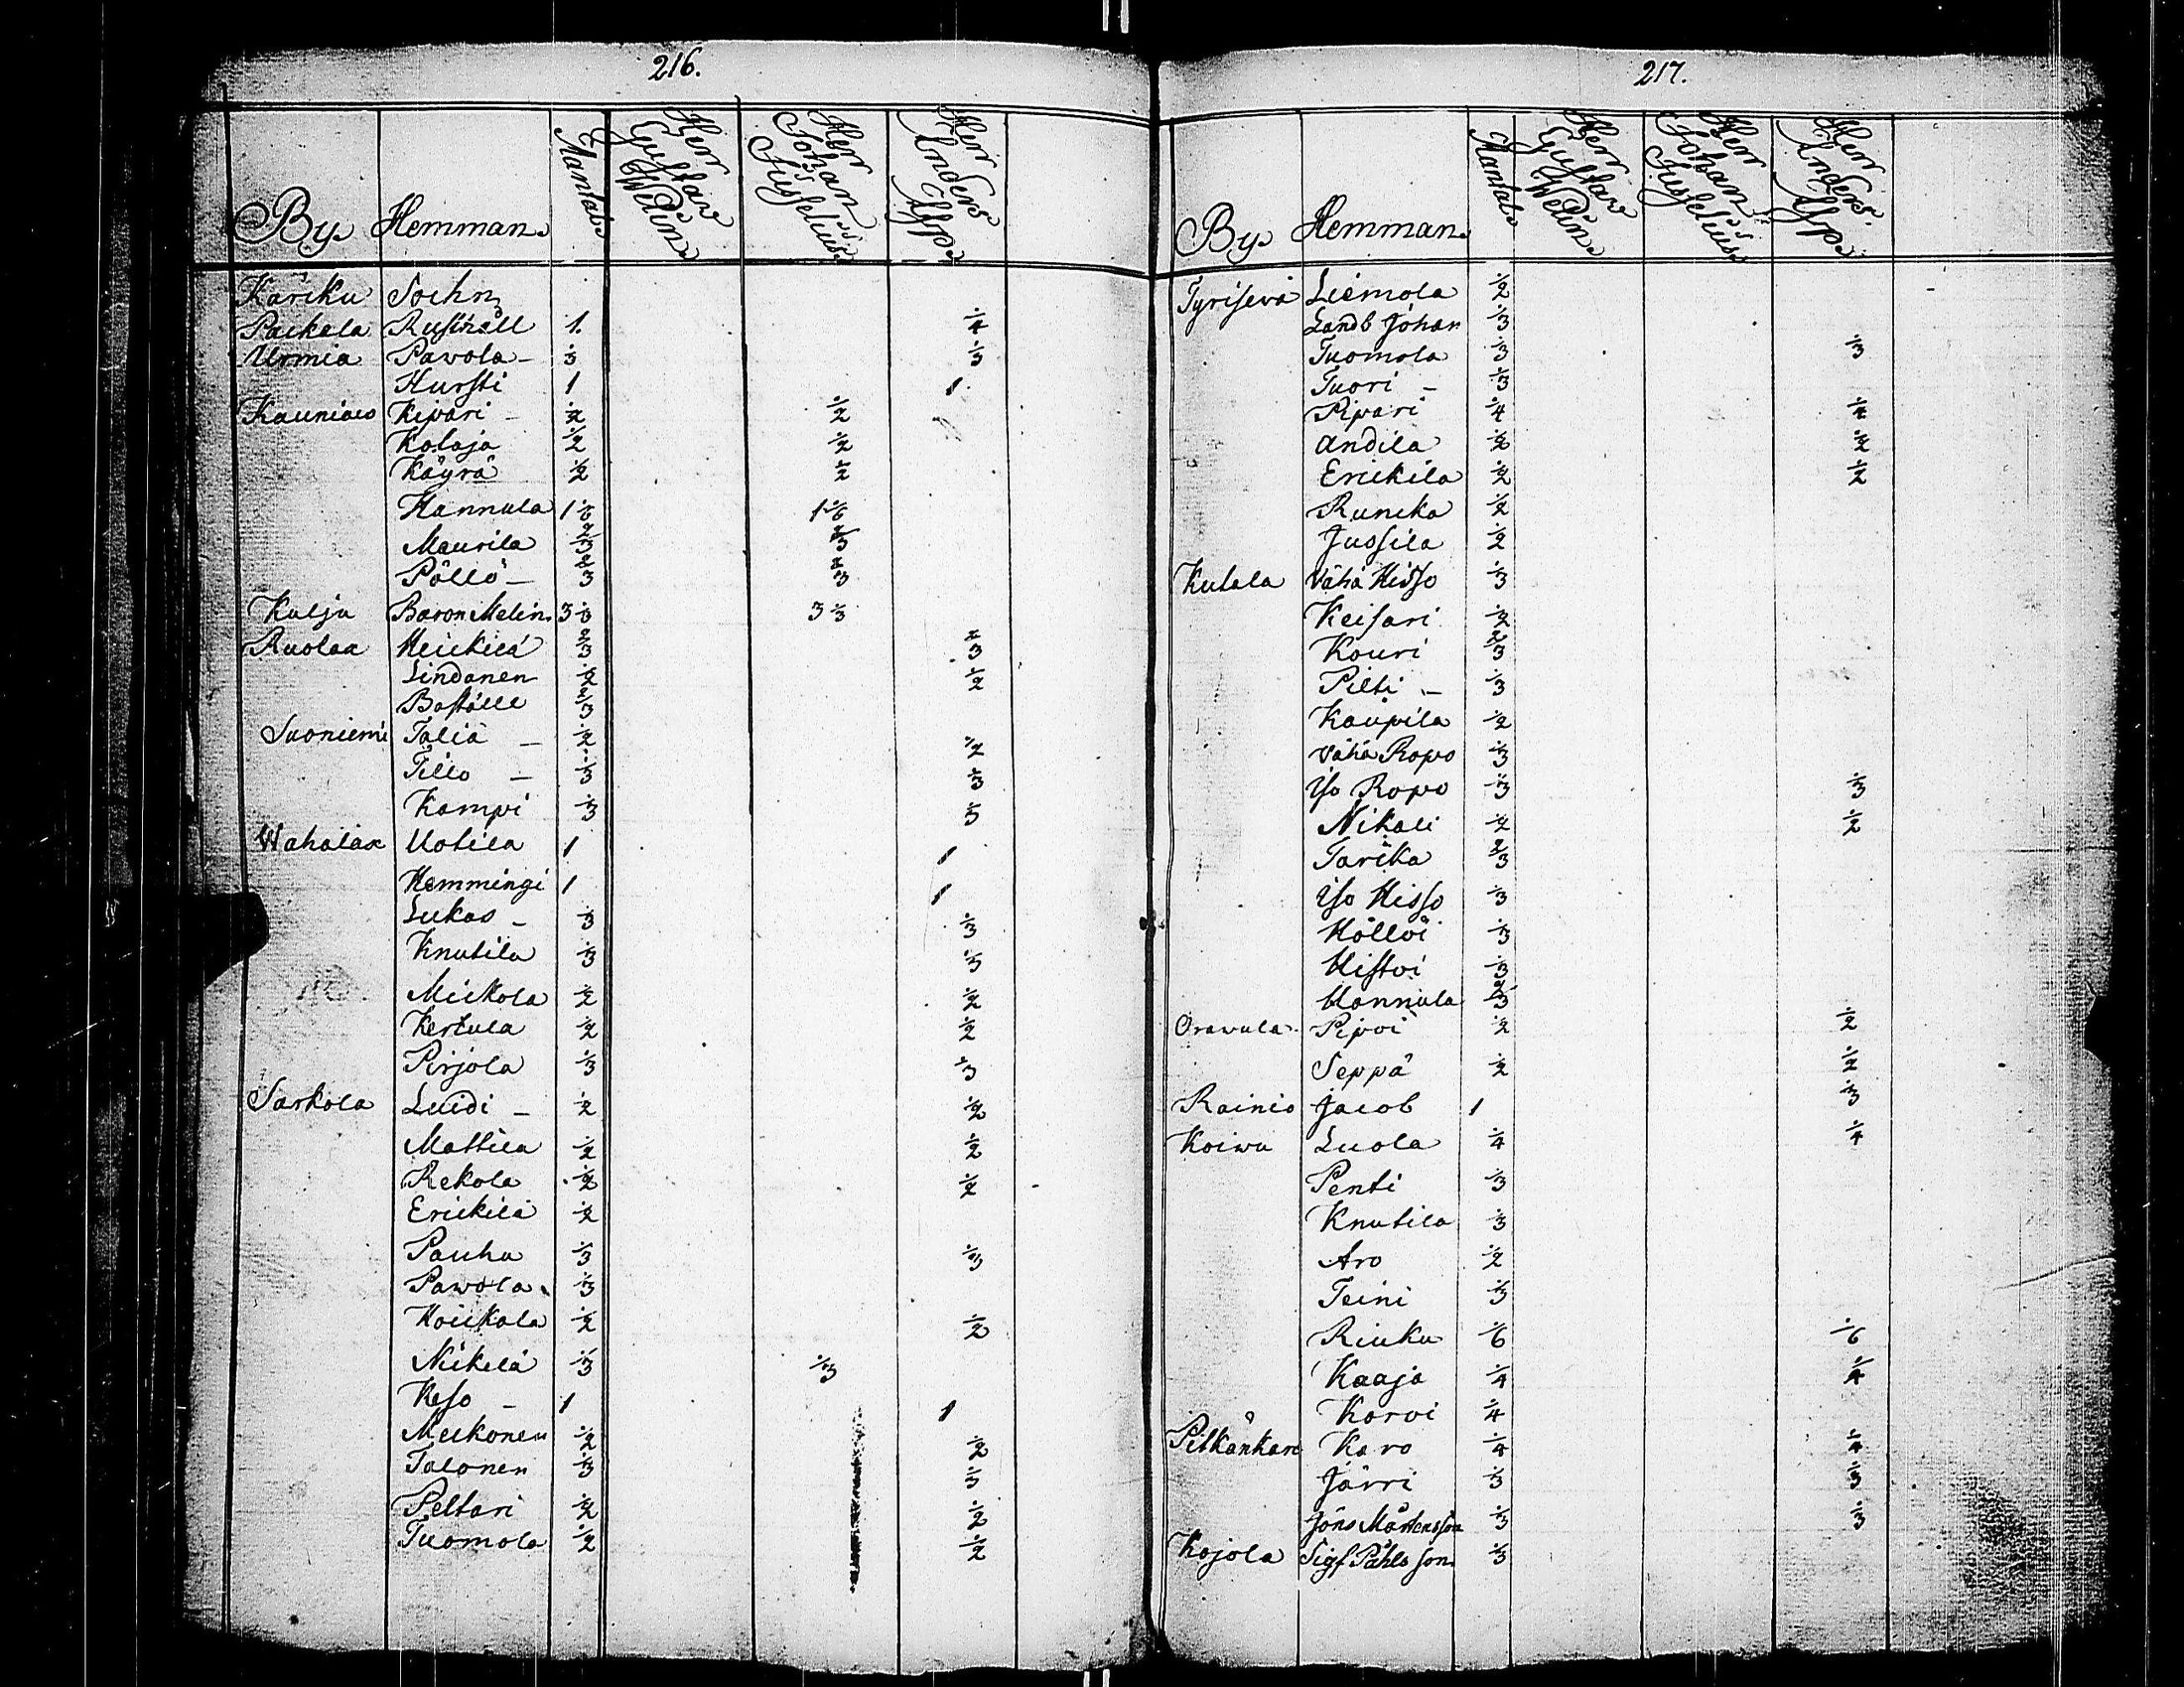 216.
By Hemman Mantal Herr Gustav Welin Herr Johan Jusselius Herr Anders Ylp
Käriku Sochn
Paikala Rusthåll 1. 1/4
Urmia Pavola - 1/3 1/3
Hursti 1 1.
Kauniais Kipari - 1/2 1/2
Kolaja 1/2 1/2
Käyrä 1/2 1/2
Hannula 1 1/6 1 1/6
Maurila 2/3 2/3
Pöllö - 2/3 2/3
Kulju Baron Melin 3 1/3 3 1/3
Ruolax Heickilä 2/3 2/3
Lindanen 1/2 1/2
Boställe 2/3
Suoniemi Taliä - 1/2 1/2
Tillo - 1/3 1/3
Kampi 1/3 1/3
Wahalax Uotila 1 1
Hemmingi 1 1
Lukas - 1/3 1/3
Knutila 1/3 1/3
Mickola 1/2 1/2
Kertula 1/2 1/2
Pirjola 1/3 1/3
Sarkola Luidi - 1/2 1/2
Mattila 1/2 1/2
Rekola 1/2 1/2
Erickilä 1/2
Pauhu 1/3 1/3
Pawola 1/3
Koickala 1/2 1/2
Nickilä 1/3 1/3
Keso - 1 1
Meckonen 1/2 1/2
Talonen 1/3 1/3
Peltari 1/2 1/2
Tuomola 1/2 1/2
217.
By Hemman Mantal Herr Gustav Welin Herr Johan Jusselius Herr Anders Ylp
Tyrisevä Liemola 1/2
Landb Johan 1/3
Tuomola 1/3 1/3
Tuori - 1/3
Pipari 1/4 1/4
Andila 1/2 1/2
Erickila 1/2 1/2
Runcka 1/2
Jussila 1/2
Kutala Vähä Hisso 1/3
Keisari 1/2
Kouri 2/3
Pilti - 1/3
Kaupila 1/2
Vähä Ropo 1/3
Iso Ropo 1/3 1/3
Nikali 1/2 1/2
Tarika 2/3
Iso Hisso 1/3
Höllöi 1/3
Histoi 1/3
Hannula 2/3
Orawula Pipoi 1/2 1/2
Seppä 1/2 1/2
Rainio Jacob 1 1/3
Koiwu Luola 1/4 1/4
Penti 1/3
Knutila 1/3
Aro 1/2
Teini 1/3
Riuku 1/6 1/6
Kaaja 1/4 1/4
Korvi 1/4
Pitkänkare Karo 1/4 1/4
Järri 1/3 1/3
Jöns Mårtensson 1/3 1/3
Kojola Sigf Påhlsson 1/3